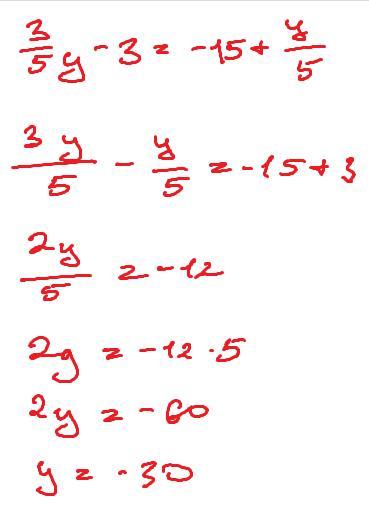 3/5 y - 3 = -15 + y/5
3y/5 - y/5 = -15 + 3
2y/5 = -12
2y = -12 · 5
2y = -60
y = -30